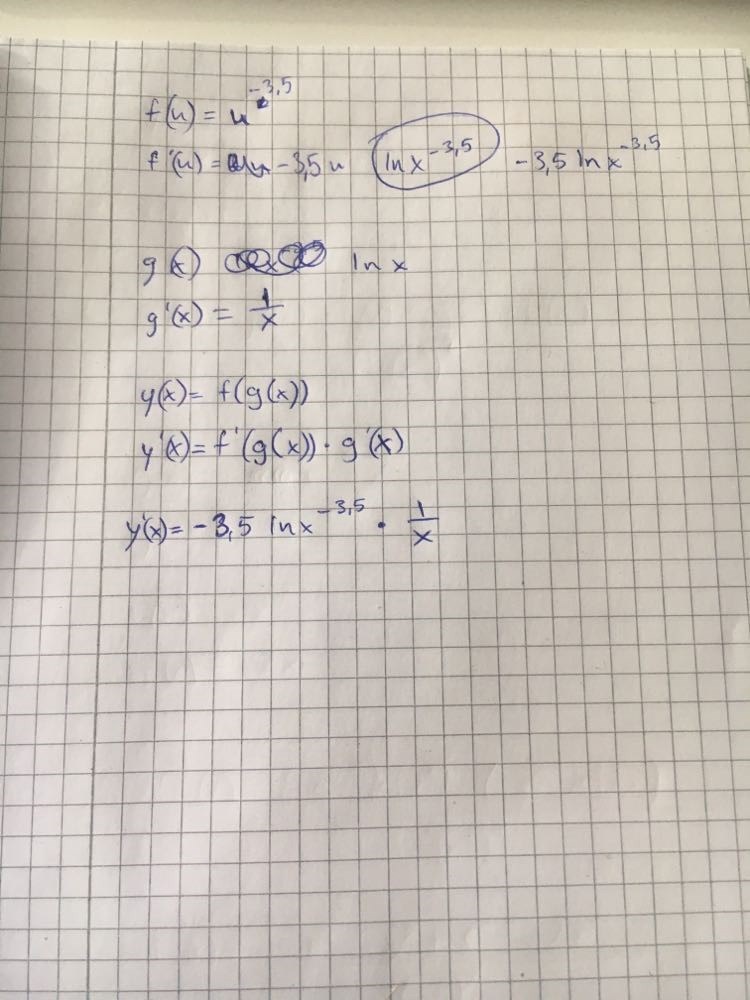 f(u) = u^-3,5
f'(u) = -3,5 u ln x^-3,5 -3,5 ln x^-3,5
g(x) ln x
g'(x) = 1/x
y(x) = f(g(x))
y'(x) = f'(g(x)) · g'(x)
y'(x) = -3,5 ln x^-3,5 · 1/x